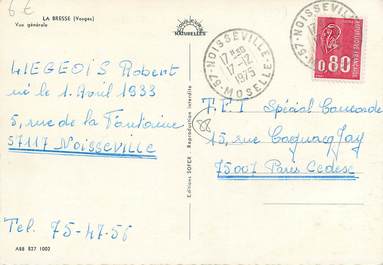 6€
LA BRESSE (Vosges)
Vue générale
COULEURS
NATURELLES
LIEGEOIS Robert
né le 1. Avril 1933
5, rue de la Fontaine
57117 Noisseville
Tel. 75-47-56
A88 827 1002
Editions SOFER Reproduction interdite
57-NOISSEVILLE
17 H30
17-12
1973
MOSELLE
57-NOISSEVILLE
0,80
T.F.1 Spécial Concorde
15, rue Cognacq Jay
75007 Paris Cedex